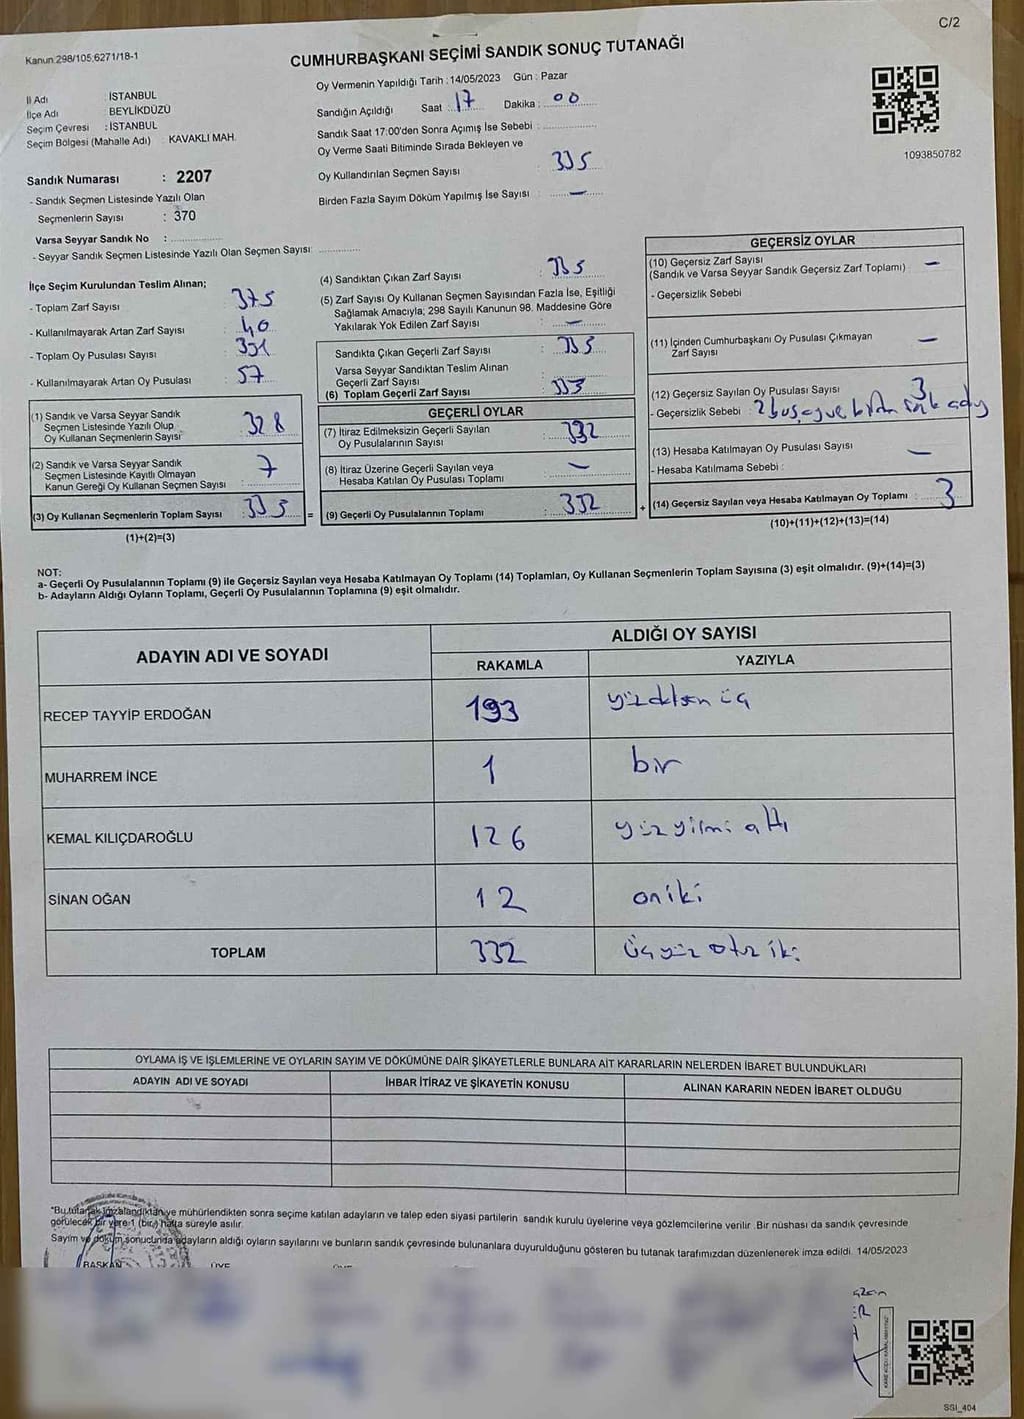 C/2
Kanun:298/105;6271/18-1
CUMHURBAŞKANI SEÇİMİ SANDIK SONUÇ TUTANAĞI
İl Adı : İSTANBUL
İlçe Adı : BEYLİKDÜZÜ
Seçim Çevresi : İSTANBUL
Seçim Bölgesi (Mahalle Adı) : KAVAKLI MAH.
Sandık Numarası : 2207
- Sandık Seçmen Listesinde Yazılı Olan
Seçmenlerin Sayısı : 370
Varsa Seyyar Sandık No :
- Seyyar Sandık Seçmen Listesinde Yazılı Olan Seçmen Sayısı:
Oy Vermenin Yapıldığı Tarih : 14/05/2023 Gün : Pazar
Sandığın Açıldığı Saat : 17 Dakika : 00
Sandık Saat 17:00'den Sonra Açımış İse Sebebi :
Oy Verme Saati Bitiminde Sırada Bekleyen ve
Oy Kullandırılan Seçmen Sayısı : 335
Birden Fazla Sayım Döküm Yapılmış İse Sayısı : —
1093850782
İlçe Seçim Kurulundan Teslim Alınan;
- Toplam Zarf Sayısı : 375
- Kullanılmayarak Artan Zarf Sayısı : 40
- Toplam Oy Pusulası Sayısı : 391
- Kullanılmayarak Artan Oy Pusulası : 57
(1) Sandık ve Varsa Seyyar Sandık
Seçmen Listesinde Yazılı Olup
Oy Kullanan Seçmenlerin Sayısı : 328
(2) Sandık ve Varsa Seyyar Sandık
Seçmen Listesinde Kayıtlı Olmayan
Kanun Gereği Oy Kullanan Seçmen Sayısı : 7
(3) Oy Kullanan Seçmenlerin Toplam Sayısı : 335
(1)+(2)=(3)
=
(4) Sandıktan Çıkan Zarf Sayısı : 335
(5) Zarf Sayısı Oy Kullanan Seçmen Sayısından Fazla İse, Eşitliği
Sağlamak Amacıyla; 298 Sayılı Kanunun 98. Maddesine Göre
Yakılarak Yok Edilen Zarf Sayısı : —
Sandıkta Çıkan Geçerli Zarf Sayısı : 335
Varsa Seyyar Sandıktan Teslim Alınan
Geçerli Zarf Sayısı :
(6) Toplam Geçerli Zarf Sayısı : 335
GEÇERLİ OYLAR
(7) İtiraz Edilmeksizin Geçerli Sayılan
Oy Pusulalarının Sayısı : 332
(8) İtiraz Üzerine Geçerli Sayılan veya
Hesaba Katılan Oy Pusulası Toplamı : —
(9) Geçerli Oy Pusulalarının Toplamı : 332
+
GEÇERSİZ OYLAR
(10) Geçersiz Zarf Sayısı —
(Sandık ve Varsa Seyyar Sandık Geçersiz Zarf Toplamı)
- Geçersizlik Sebebi
(11) İçinden Cumhurbaşkanı Oy Pusulası Çıkmayan
Zarf Sayısı —
(12) Geçersiz Sayılan Oy Pusulası Sayısı 3
- Geçersizlik Sebebi : 2
(13) Hesaba Katılmayan Oy Pusulası Sayısı —
- Hesaba Katılmama Sebebi :
(14) Geçersiz Sayılan veya Hesaba Katılmayan Oy Toplamı : 3
(10)+(11)+(12)+(13)=(14)
NOT:
a- Geçerli Oy Pusulalarının Toplamı (9) ile Geçersiz Sayılan veya Hesaba Katılmayan Oy Toplamı (14) Toplamları, Oy Kullanan Seçmenlerin Toplam Sayısına (3) eşit olmalıdır. (9)+(14)=(3)
b- Adayların Aldığı Oyların Toplamı, Geçerli Oy Pusulalarının Toplamına (9) eşit olmalıdır.
ADAYIN ADI VE SOYADI
ALDIĞI OY SAYISI
RAKAMLA YAZIYLA
RECEP TAYYİP ERDOĞAN 193 yüzdoksan üç
MUHARREM İNCE 1 bir
KEMAL KILIÇDAROĞLU 126 yüz yirmi altı
SİNAN OĞAN 12 oniki
TOPLAM 332 üçyüz otuz iki
OYLAMA İŞ VE İŞLEMLERİNE VE OYLARIN SAYIM VE DÖKÜMÜNE DAİR ŞİKAYETLERLE BUNLARA AİT KARARLARIN NELERDEN İBARET BULUNDUKLARI
ADAYIN ADI VE SOYADI İHBAR İTİRAZ VE ŞİKAYETİN KONUSU ALINAN KARARIN NEDEN İBARET OLDUĞU
*Bu tutanak imzalandıktan ve mühürlendikten sonra seçime katılan adayların ve talep eden siyasi partilerin sandık kurulu üyelerine veya gözlemcilerine verilir. Bir nüshası da sandık çevresinde
görülecek bir yere 1 (bir) hafta süreyle asılır.
Sayım ve döküm sonucunda adayların aldığı oyların sayılarını ve bunların sandık çevresinde bulunanlara duyurulduğunu gösteren bu tutanak tarafımızdan düzenlenerek imza edildi. 14/05/2023
BAŞKAN ÜYE
SGI_404